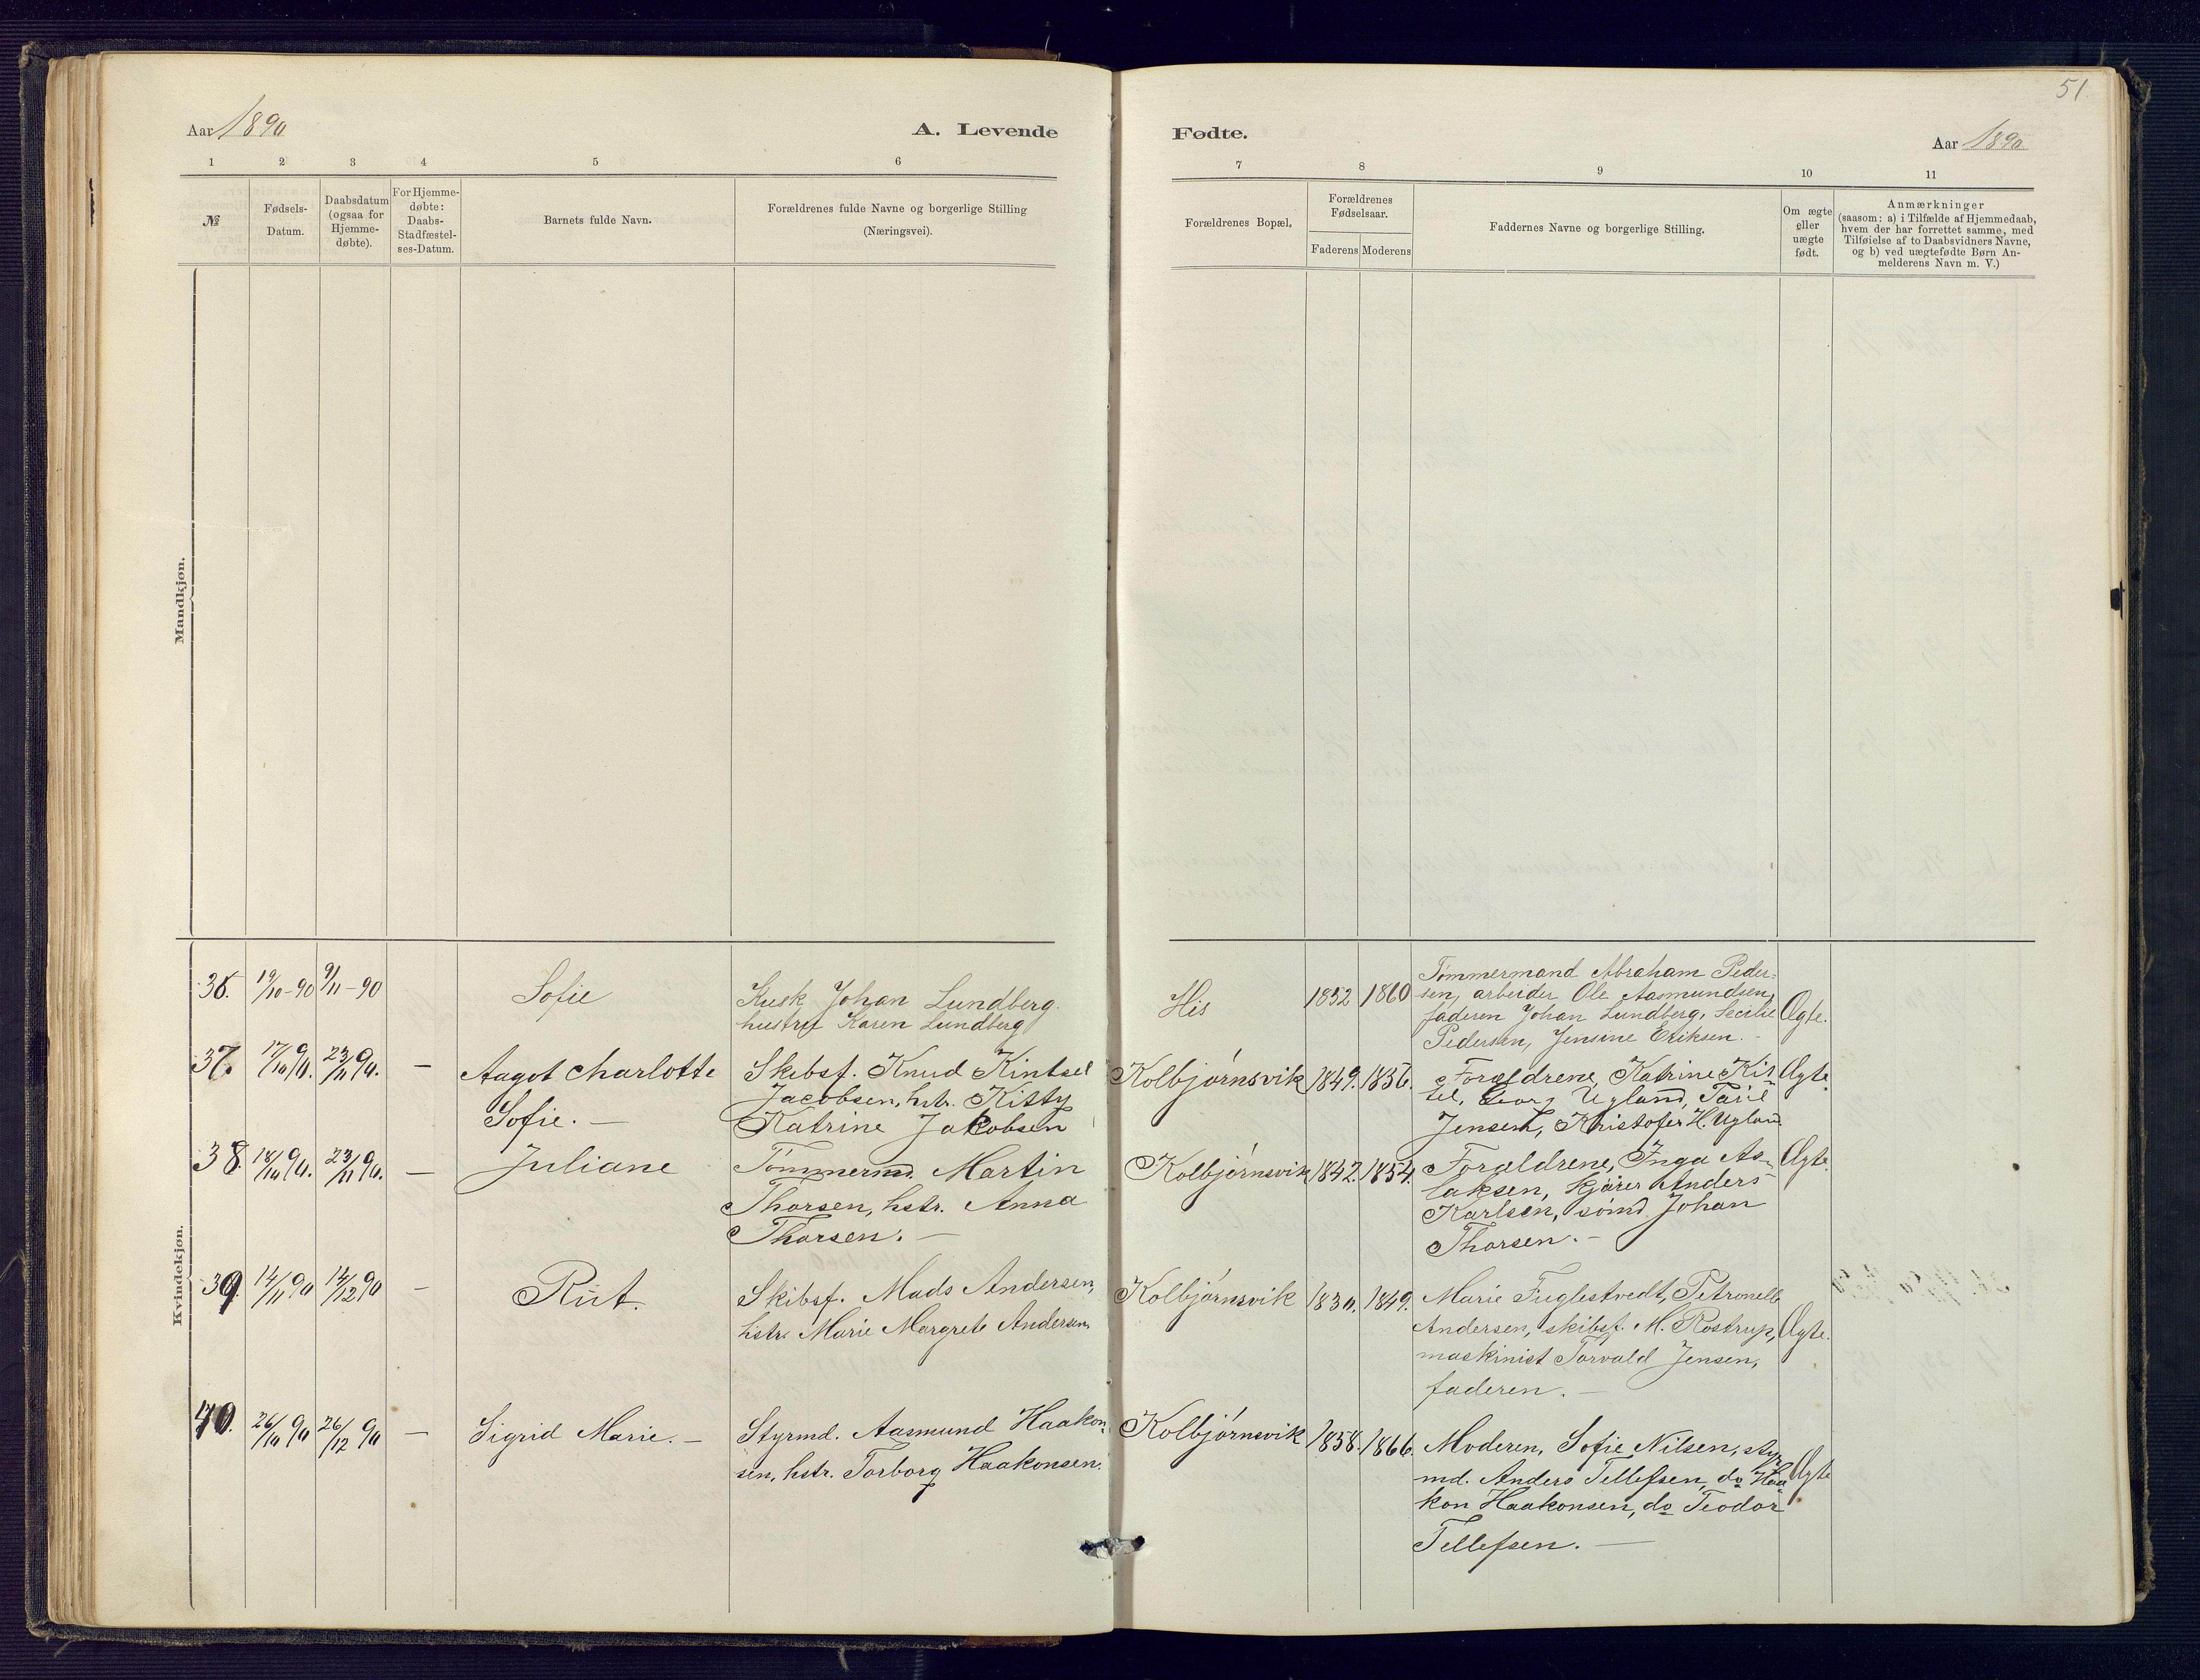 51.
Aar 1890
A. Levende
Fødte.
Aar 1890
1 2 3 4 5 6 7 8 9 10 11
№
Fødsels-
Datum.
Daabsdatum
(ogsaa for
Hjemme-
døbte).
For Hjemme-
døbte:
Daabs-
Stadfæstel-
ses-Datum.
Barnets fulde Navn.
Forældrenes fulde Navne og borgerlige Stilling
(Næringsvei).
Forældrenes Bopæl.
Forældrenes
Fødselsaar.
Faderens Moderens
Faddernes Navne og borgerlige Stilling.
Om ægte
eller
uægte
født.
Anmærkninger
(saasom: a) i Tilfælde af Hjemmedaab,
hvem der har forrettet samme, med
Tilføielse af to Daabsvidners Navne,
og b) ved uægtefødte Børn An-
melderens Navn m. V.)
Mandkjøn.
Kvindekjøn.
36. 19/10-90 9/11-90
Sofie
Kusk Johan Lundberg.
hustru Karen Lundberg
His
1852 1860
Tømmermand Abraham Peder-
sen, arbeider Ole Aasmundsen,
faderen Johan Lundberg, Secilie
Pedersen, Jensine Eriksen.
Ægte.
37. 17/10 90. 23/11 90. —
Aagot Charlotte
Sofie. —
Skibsf. Knud Kintsel
Jacobsen, hstr. Kitty
Katrine Jakobsen
Kolbjørnsvik
1849. 1856.
Forældrene, Katrine Kit-
tel, Georg Ugland, Taril
Jensen, Kristofer H. Ugland.
Ægte.
38. 18/10 90. 23/11 90. —
Juliane
Tømmermd. Martin
Thorsen, hstr. Anna
Thorsen. —
Kolbjørnsvik
1847. 1854.
Forældrene, Inga As-
laksen, kjører Anders
Karlsen, sømd. Johan
Thorsen. —
Ægte.
39. 14/11 90 14/12 90 —
Rut.
Skibsf. Mads Andersen,
hstr. Marie Margrete Andersen.
Kolbjørnsvik
1830. 1849.
Marie Fuglestvedt, Petronelle
Andersen, skibsf. M. Rostrup,
maskinist Torvald Jensen,
faderen. —
Ægte.
40. 26/10 90 26/12 90 —
Sigrid Marie. —
Styrmd. Aasmund Haakon-
sen, hstr. Torborg Haakonsen.
Kolbjørnsvik
1858. 1866.
Moderen, Sofie Nilsen, styr-
md. Anders Tellefsen, do Haa-
kon Haakonsen, do Teodor
Tellefsen. —
Ægte